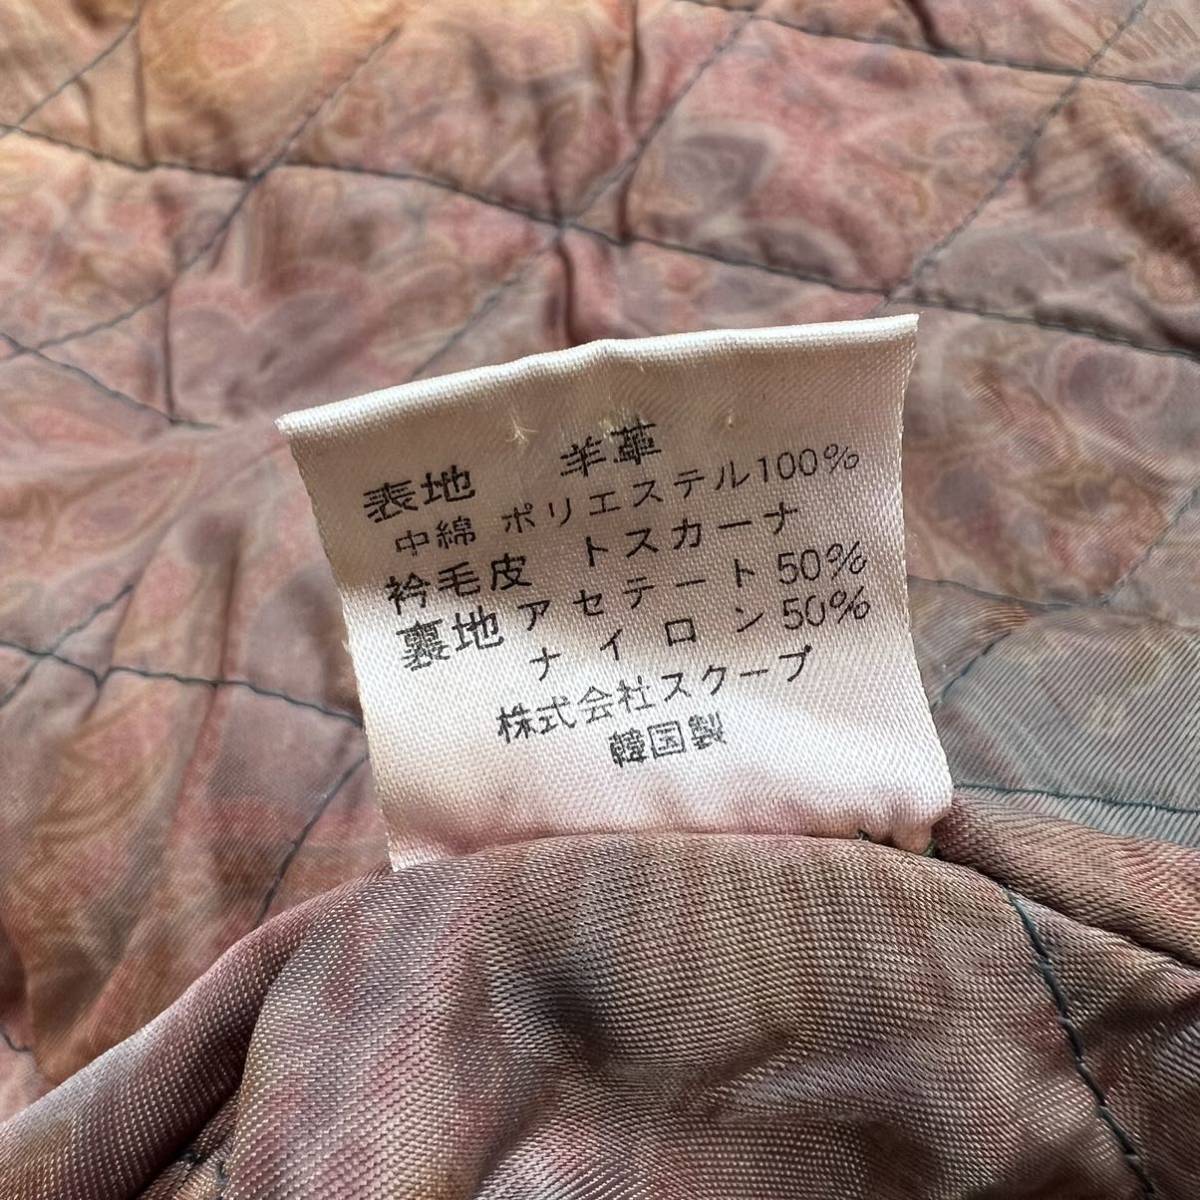 表地 羊革
中綿 ポリエステル100%
衿毛皮 トスカーナ
裏地 アセテート50%
ナイロン50%
株式会社スクープ
韓国製